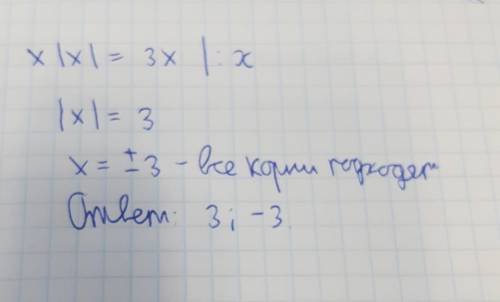 x|x| = 3x |: x
|x| = 3
x = ± 3 - все корни подходят
Ответ: 3; -3